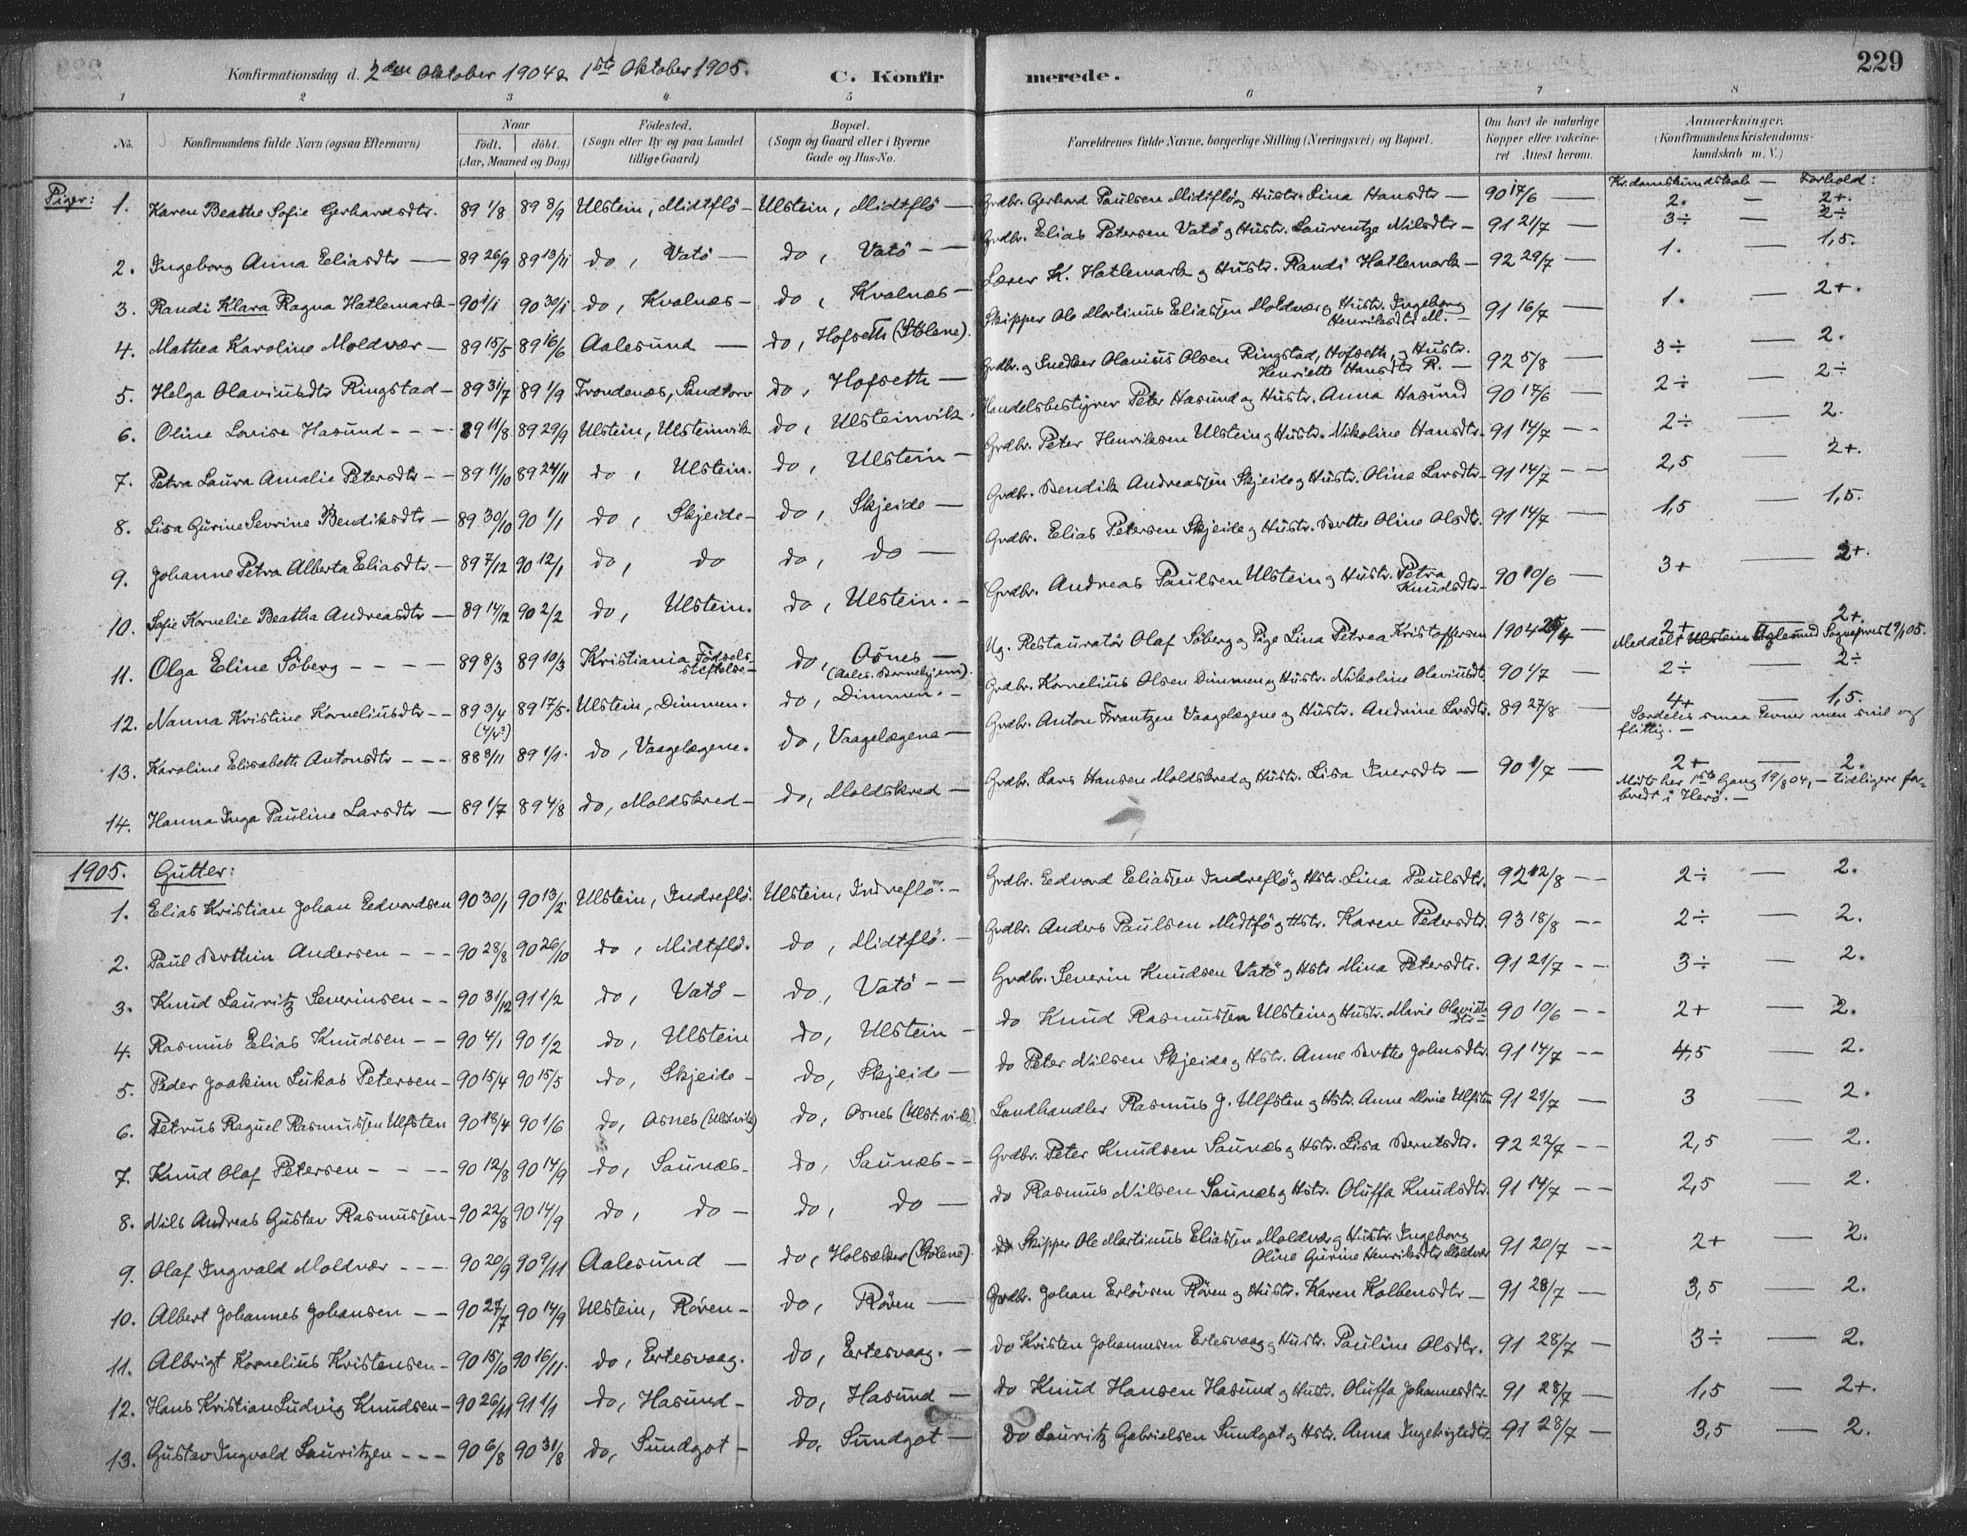 229
Konfirmationsdag d. 2den Oktober 1904 & 1ste Oktober 1905. C. Konfirmerede.
1 2 3 4 5 6 7 8
No. Konfirmandens fulde Navn (ogsaa Efternavn) Naar født. døbt. (Aar, Maaned og Dag) Fødested. (Sogn eller By og paa Landet tillige Gaard) Bopæl. (Sogn og Gaard eller i Byerne Gade og Hus-No. Forældrenes fulde Navne, borgerlige Stilling (Næringsvei) og Bopæl. Om havt de naturlige Kopper eller vakcineret Attest herom. Anmærkninger. (Konfirmandens Kristendomskundskab m. V.)
Piger: Kr.domskundskab — Forhold:
1. Karen Beathe Sofie Gerhardsdtr. 89 1/8 89 8/9 Ulstein, Midtflø — Ulstein, Midtflø — Grdbr. Gerhard Paulsen Midtflø og Hustr. Lina Hansdtr — 90 17/6 — 2. — 2+.
2. Ingeborg Anna Eliasdtr — 89 26/9 89 13/11 do, Vatö — do, Vatö — Grdbr. Elias Petersen Vatö og Hustr. Laurentze Nilsdtr — 91 21/7 — 3÷ — 2÷
3. Randi Klara Ragna Hatlemark — 90 1/1 90 30/1 do, Kvalnæs — do, Kvalnæs — Lærer K. Hatlemark og Hustr. Randi Hatlemark — 92 29/7 — 1. — 1,5.
4. Mathea Karoline Moldvær — 89 15/5 89 16/6 Aalesund — do, Hofseth (Stølene). Skipper Ole Martinus Eliassen Moldvær og Hustr. Ingeborg Henriksdtr M. — 91 16/7 — 1. — 2+.
5. Helga Olaviusdtr Ringstad — 89 31/7 89 1/9 Trondenæs, Sandtorv do, Hofseth — Grdbr. og Snedker Olavius Olsen Ringstad, Hofseth, og Hustr. Henriette Hansdtr R. — 92 5/8 — 3÷ — 2.
6. Oline Lovise Hasund — — — 89 11/8 89 29/9 Ulstein, Ulsteinvik do, Ulsteinvik. Handelsbestyrer Peter Hasund og Hustr. Anna Hasund 90 17/6 — 2÷ — 2÷
7. Petra Laura Amalie Petersdtr — — 89 11/10 89 24/11 do, Ulstein. do, Ulstein — Grdbr. Peter Henriksen Ulstein og Hustr. Nikoline Hansdtr. 91 14/7 — — 2÷ — 2.
8. Lisa Gurine Sevrine Bendiksdtr — 89 30/10 90 1/1 do, Skjeide — do, Skjeide — Grdbr. Bendik Andreassen Skjeide og Hustr. Oline Larsdtr — 91 14/7 — — 2,5 — 2+.
9. Johanne Petra Alberta Eliasdtr — 89 7/12 90 12/1 do, do do, do — Grdbr. Elias Petersen Skjeide og Hustr. Berthe Oline Olsdtr. 91 14/7 — 1,5 — 1,5.
10. Sofie Kornelie Beatha Andreasdtr — 89 14/12 90 2/2 do, Ulstein. do, Ulstein. — Grdbr. Andreas Paulsen Ulstein og Hustr. Petra Knudsdtr — 90 10/6 — 3+ — 2+.
11. Olga Eline Söberg — — — — 89 8/3 89 10/3 Kristiania Födselsstiftelse — do, Osnes — (Aales. Barnehjem). Ug. Restauratör Olaf Söberg og Pige Lina Petrea Kristoffersen 1904 25/4 2+ — 2+. Meddelt Aalesund Sogneprest 9/1 05.
12. Nanna Kristine Korneliusdtr — — 89 3/4 (4/4?) 89 17/5. Ulstein, Dimmen. do, Dimmen. — Grdbr. Kornelius Olsen Dimmen og Hustr. Nikoline Olaviusdtr 90 1/7 — 2÷ — 2÷
13. Karoline Elisabeth Antonsdtr — — — 88 8/11 89 1/1. do, Vaagelægene. do, Vaagelægene — Grdbr. Anton Frantzen Vaagelægene og Hustr. Andrine Larsdtr. 89 27/8 — 4+ — 1,5. Særdeles smaa Evner men snil og flittig. —
14. Hanna Inga Pauline Larsdtr — 89 1/7 89 4/8 do, Moldskred — do, Moldskred — Grdbr. Lars Hansen Moldskred og Hustr. Lisa Iversdtr — 90 1/7 — 2+ — 2. Mödt her 1ste Gang 19/8 04, — tidligere forbredt i Herö. —
1905. Gutter:
1. Elias Kristian Johan Eedvardsen 90 30/1 90 13/2 Ulstein, Indreflö. Ulstein, Indreflö. — Grdbr. Eedvard Eliassen Indreflö og Hstr. Lina Paulsdtr. 92 12/8 — — 2÷ — 2.
2. Paul Berthin Andersen — — — 90 28/8 90 26/10 do, Midtflö. do, Midtflö. — Grdbr. Anders Paulsen Midtflö og Hstr. Karen Pedersdtr. 93 18/8 — — 2÷ — 2.
3. Knud Lauritz Severinsen — — 90 31/12 91 1/2 do, Vatö — do, Vatö — — Grdbr. Severin Knudsen Vatö og Hstr Mina Petersdtr. 91 21/7 — — 3÷ — 2.
4. Rasmus Elias Knudsen — — 90 4/1 90 1/2 do, Ulstein do, Ulstein — do Knud Rasmussen Ulstein og Hustr. Marie Olaviusdtr — 90 10/6 — — 2+ — 2.
5. Peder Joakim Lukas Petersen — 90 15/4 90 15/5 do, Skjeide — do, Skjeide — do Peter Nilsen Skjeide og Hstr. Anne Berthe Johnsdtr. 91 14/7 — — 4,5 — 2.
6. Petrus Raguel Rasmussen Ulfsten 90 18/4 90 1/6 do, Osnes (Ulst.vik) do, Osnes (Ulst.vik). Landhandler Rasmus J. Ulfsten og Hstr. Anne Marie Ulfsten 91 21/7 — 3 — 2.
7. Knud Olaf Petersen — — — — 90 12/8 90 14/9 do, Saunæs — do, Saunæs — — Grdbr. Peter Knudsen Saunæs og Hstr. Lisa Berntsdtr. 92 22/7 — — 2,5 — 2.
8. Nils Andreas Gustav Rasmussen — 90 22/8 90 14/9 do, do — do, do — do Rasmus Nilsen Saunæs og Hstr. Oluffa Knudsdtr. 91 14/7 — — 2,5 — 2.
9. Olaf Ingvald Moldvær — — — 90 20/9 90 9/11 Aalesund — do, Holsæker (Stølene). Skipper Ole Martinus Eliassen Moldvær og Hustr. Ingeborg Oline Gurine Henriksdtr Moldvær 91 20/7 — — 2+ — 2.
10. Albert Johannes Johansen — — 90 27/7 90 14/9 Ulstein, Röven — do, Röven — Grdbr. Johan Erlövsen Röven og Hustr. Karen Kolbensdtr — 91 28/7 — 3,5 — 2.
11. Albrigt Kornelius Kristensen — 90 15/10 90 16/11. do, Ertesvaag. do, Ertesvaag. — do Kristen Johannesen Ertesvaag og Hustr. Pauline Olsdtr. 91 28/7 — 3÷ — 2.
12. Hans Kristian Ludvig Knudsen — 90 26/11 91 1/1 do, Hasund — do, Hasund — do Knud Hansen Hasund og Hustr. Oluffa Johannesdtr — 91 28/7 — 1,5 — 2+.
13. Gustav Ingvald Lauritzen — — — 90 6/8 90 31/8 do, Sundgot — do, Sundgot — do Lauritz Gabrielsen Sundgot og Hstr. Anna Ingebrigtsdtr. 91 28/7 — 3,5 — 2.